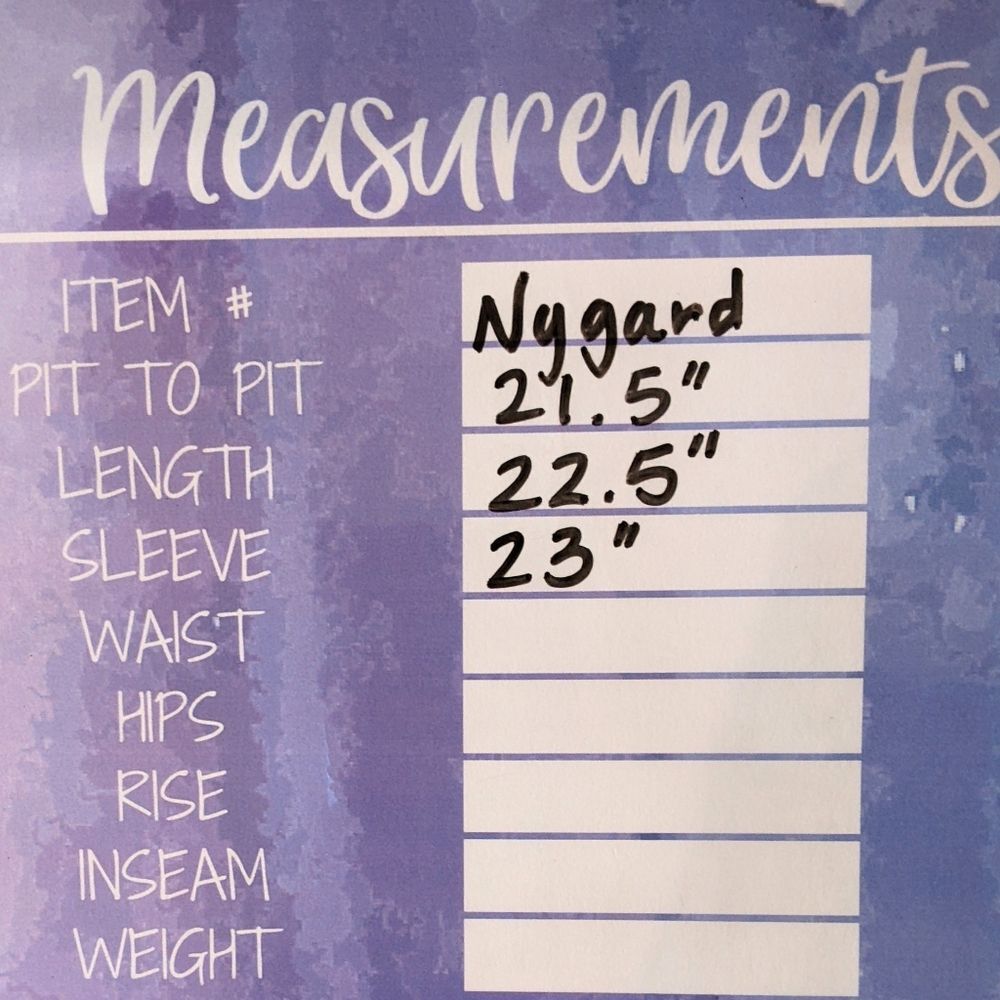 Measurements
ITEM # Nygard
PIT TO PIT 21.5"
LENGTH 22.5"
SLEEVE 23"
WAIST
HIPS
RISE
INSEAM
WEIGHT